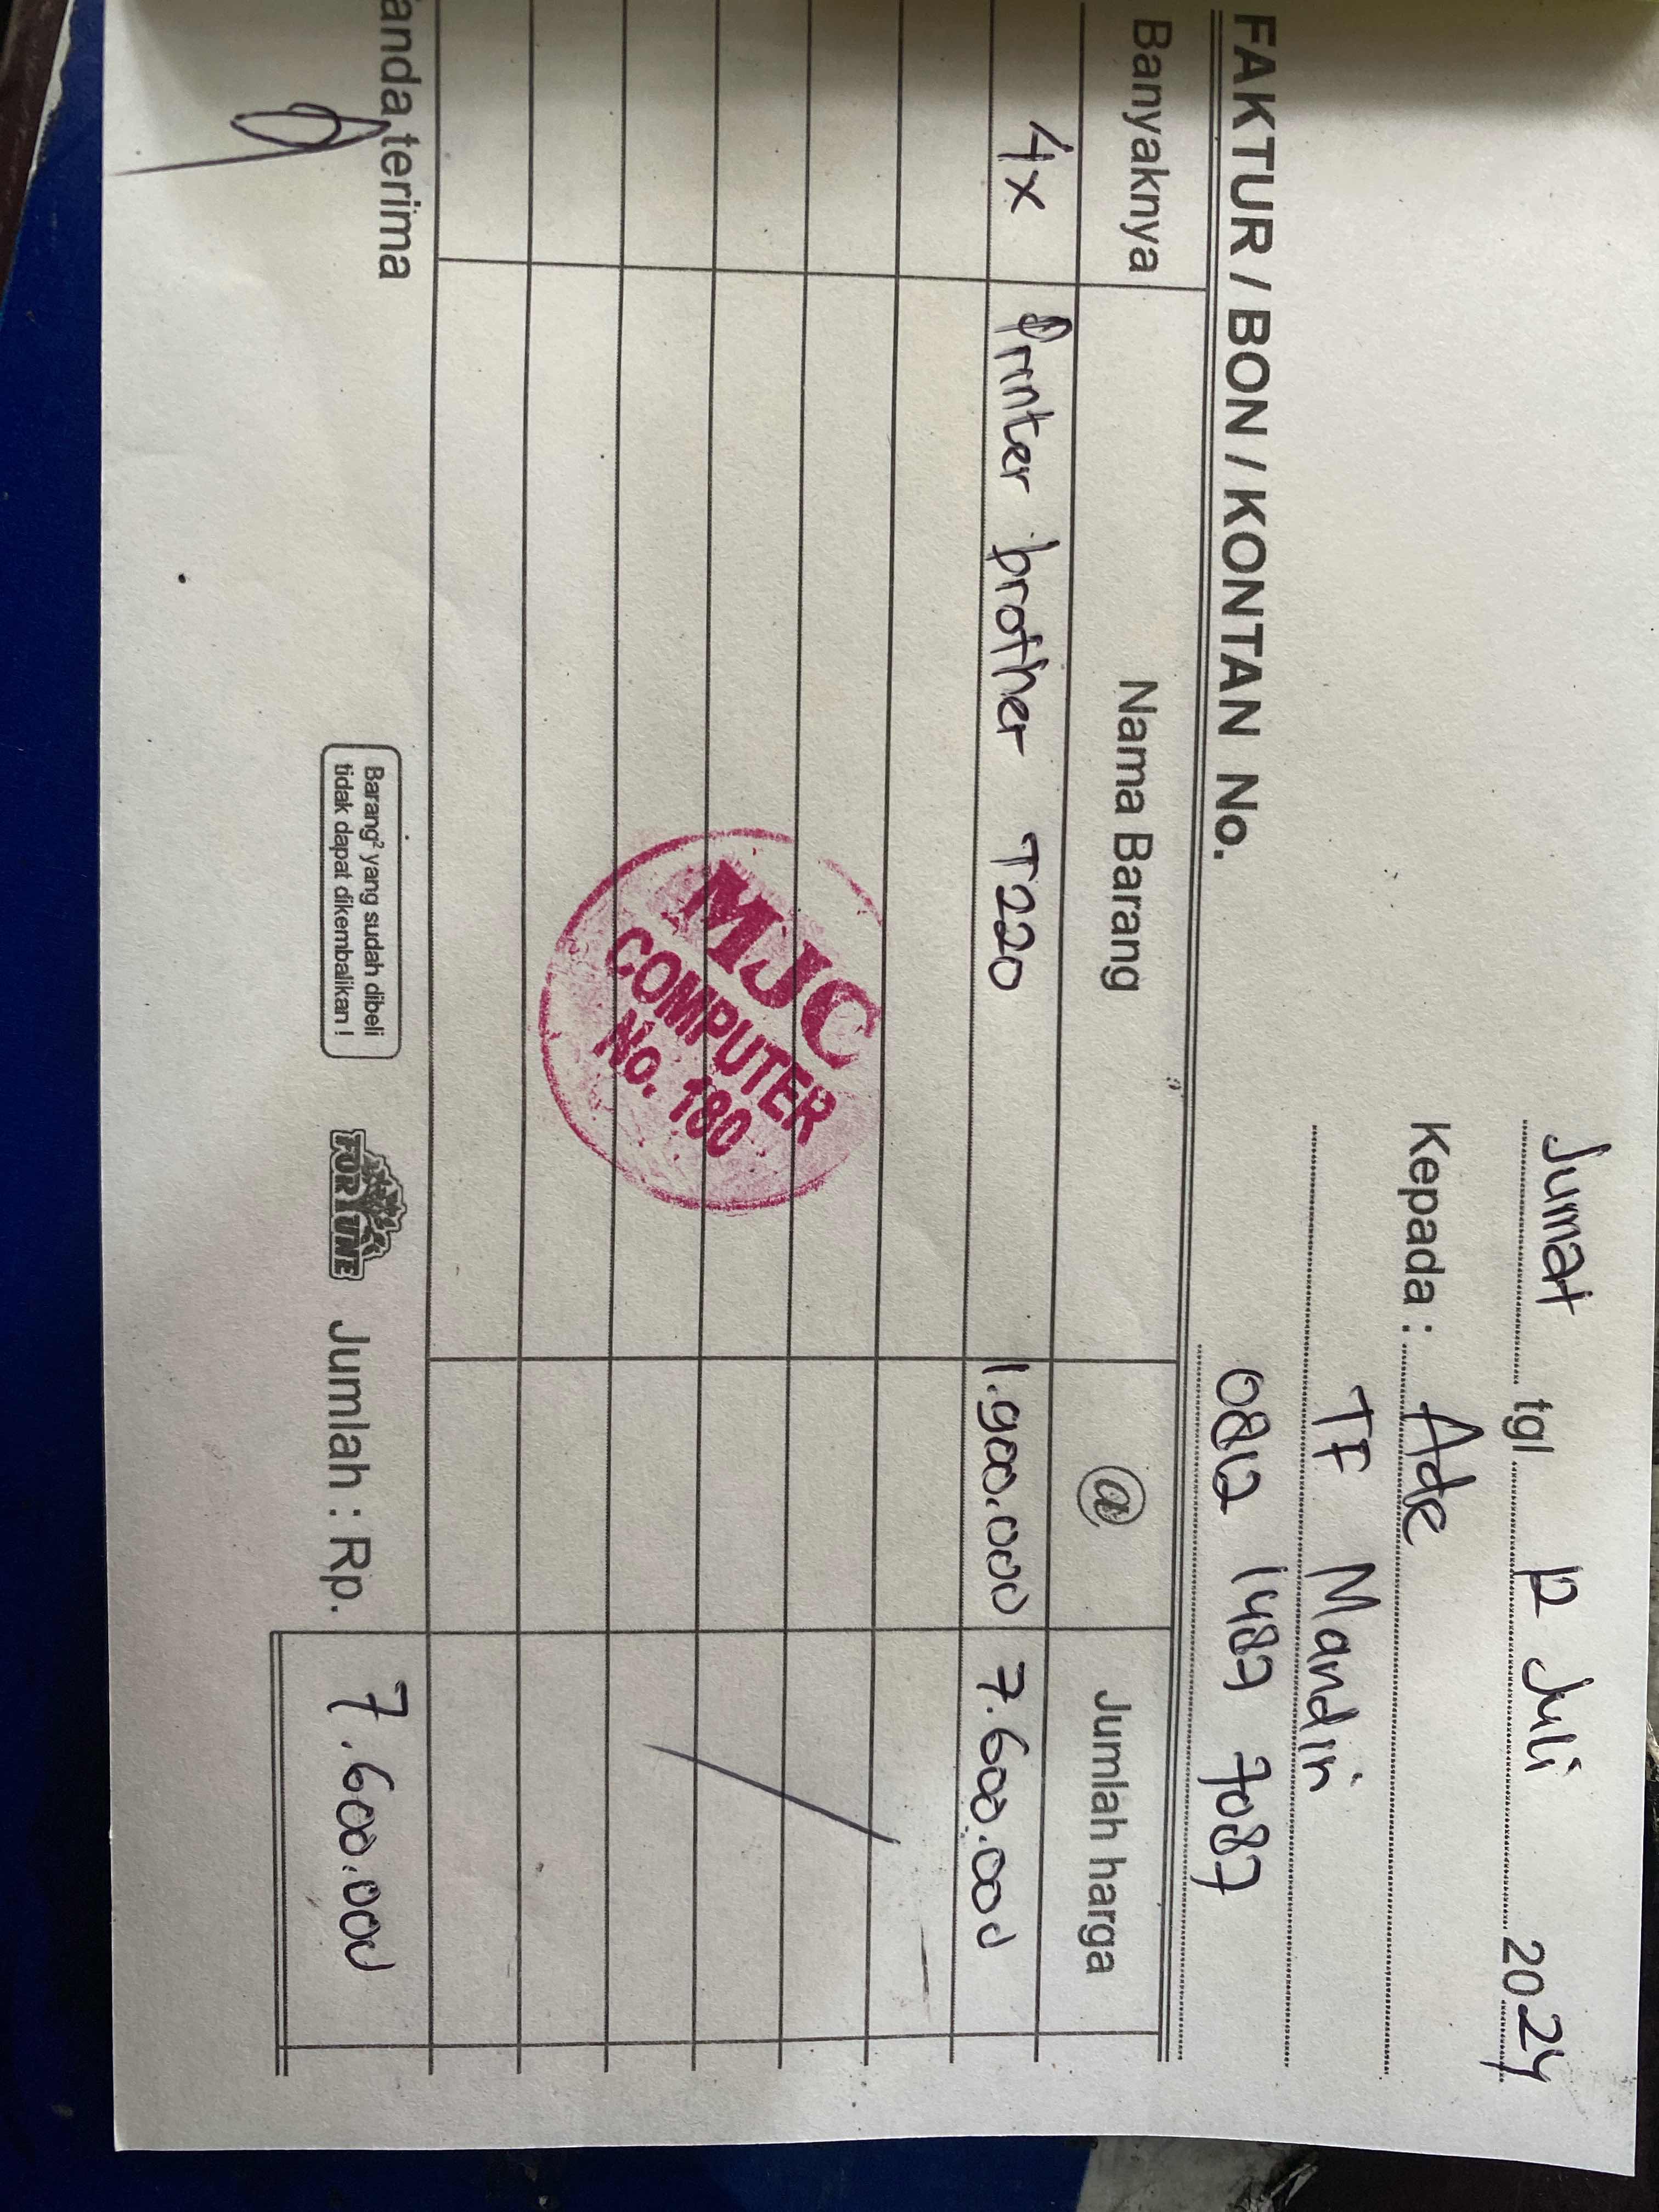 Jumat tgl. 12 Juli 2024
Kepada : Ade
TF Mandiri
0812 1489 7087
FAKTUR / BON / KONTAN No.
Banyaknya Nama Barang @ Jumlah harga
4x Printer brother T220 1.900.000 7.600.000
MJC
COMPUTER
No. 180
anda terima
Barang² yang sudah dibeli
tidak dapat dikembalikan !
FORTUNE
Jumlah : Rp. 7.600.000